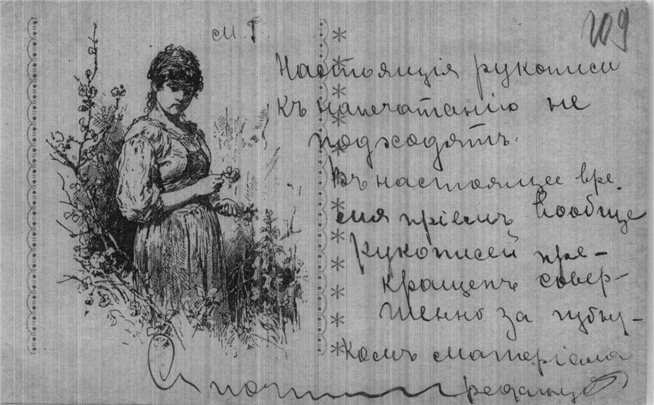 109
М Г.
Настоящія рукописи
къ напечатанію не
подходятъ.
Въ настоящее вре-
мя пріемъ вообще
рукописей пре-
кращенъ совер-
шенно за
матеріала